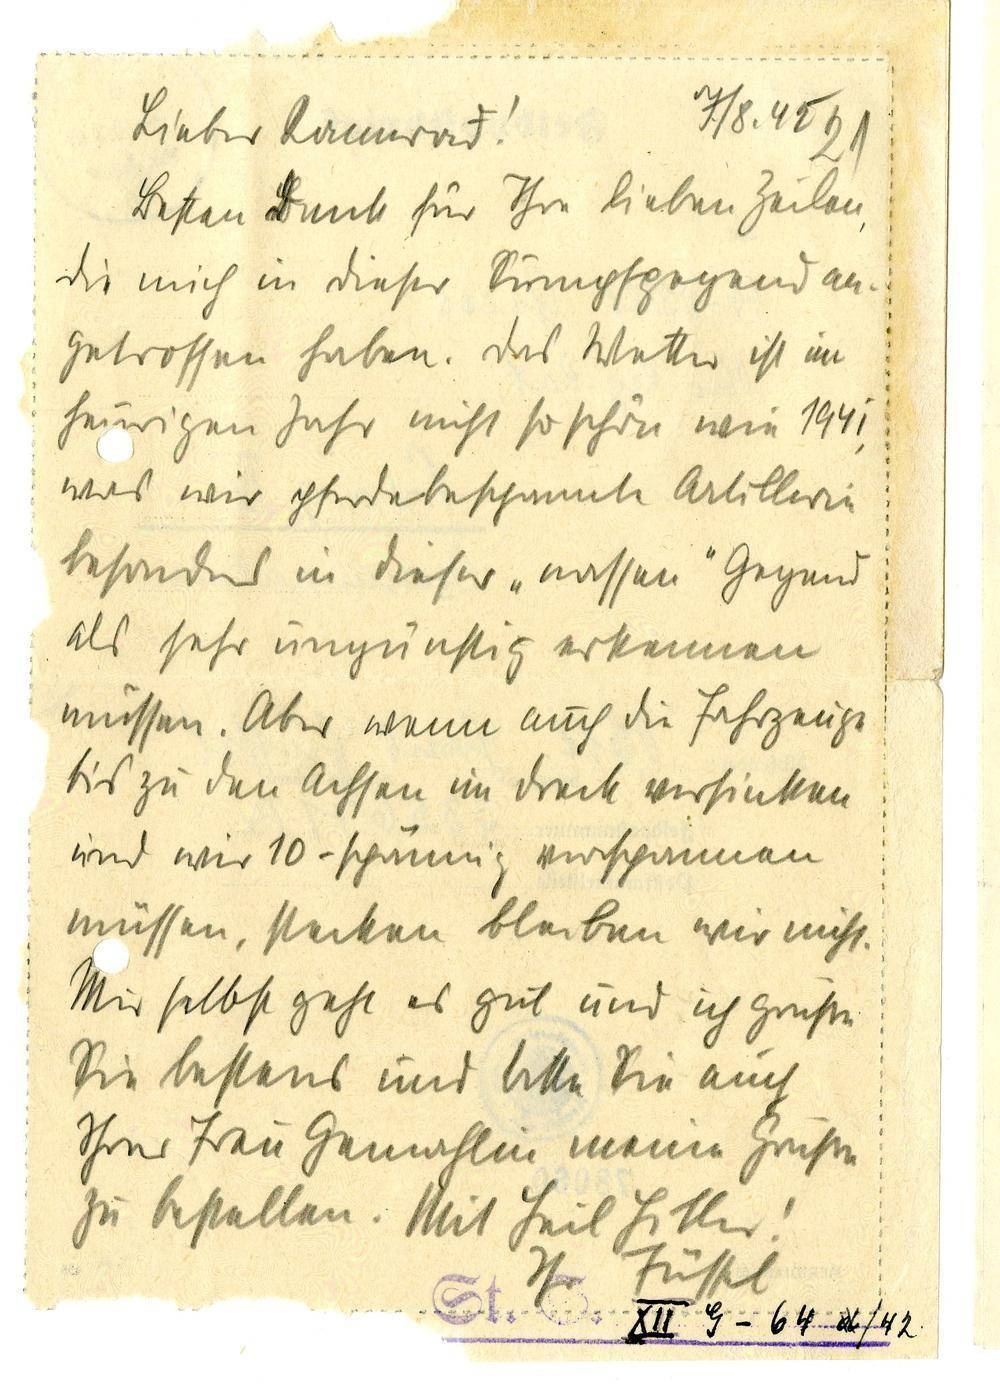 Lieber Kamerad!
7/8.42
21
Besten Dank für Ihre lieben Zeilen,
die mich in dieser Sumpfgegend an-
getroffen haben. Das Wetter ist im
heurigen Jahr nicht so schön wie 1941,
was wir pferdebespannte Artillerie
besonders in dieser „nassen" Gegend
als sehr ungünstig erkennen
müssen. Aber wenn auch die Fahrzeuge
bis zu den Achsen im Dreck versinken
und wir 10-spännig vorspannen
müssen, stecken bleiben wir nicht.
Mir selbst geht es gut und ich grüße
Sie bestens und bitte Sie auch
Ihrer Frau Gemahlin meine Grüße
zu bestellen. Mit Heil Hitler!
Ihr Füssl
St. S.
XII G - 64 /42